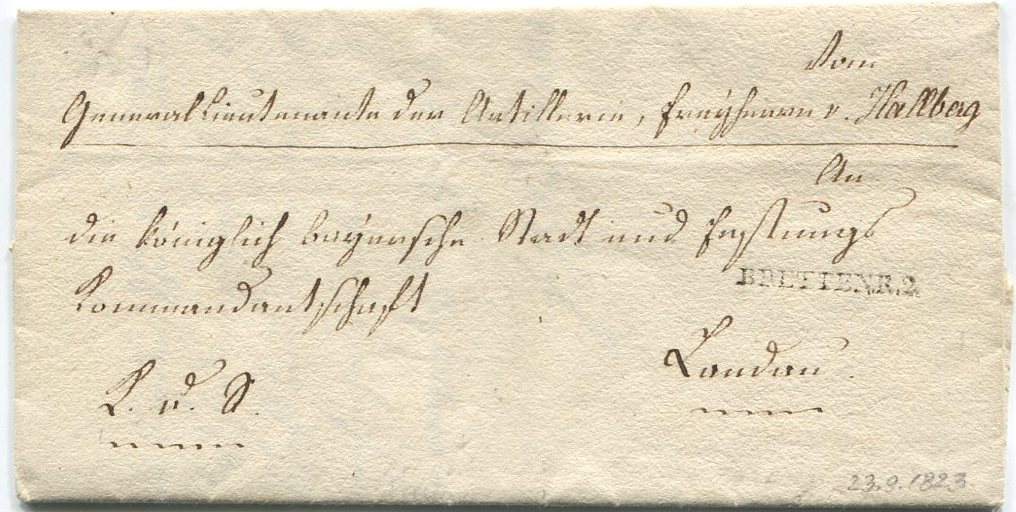 Vom
Generallieutenante der Artillerie, Freyherrn v. Hallberg
An
die königlich bayersche Stadt und Festungs
BRETTEN.R.2
Kommandantschaft
Landau.
K. d. S.
23.9.1823